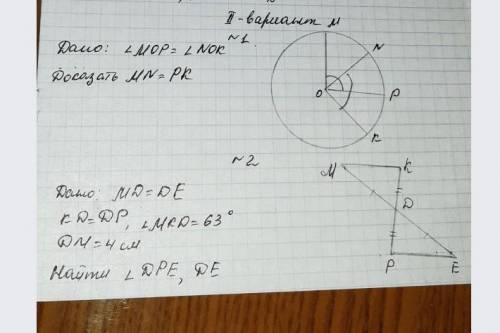 II-вариант
№1
Дано: ∠MOP = ∠NOK
Досазать MN = PK
M
N
O
P
K
№2
Дано: MD = DE
KD = DP, ∠MKD = 63°
DM = 4 см
Найти ∠DPE, DE
M
K
D
P
E